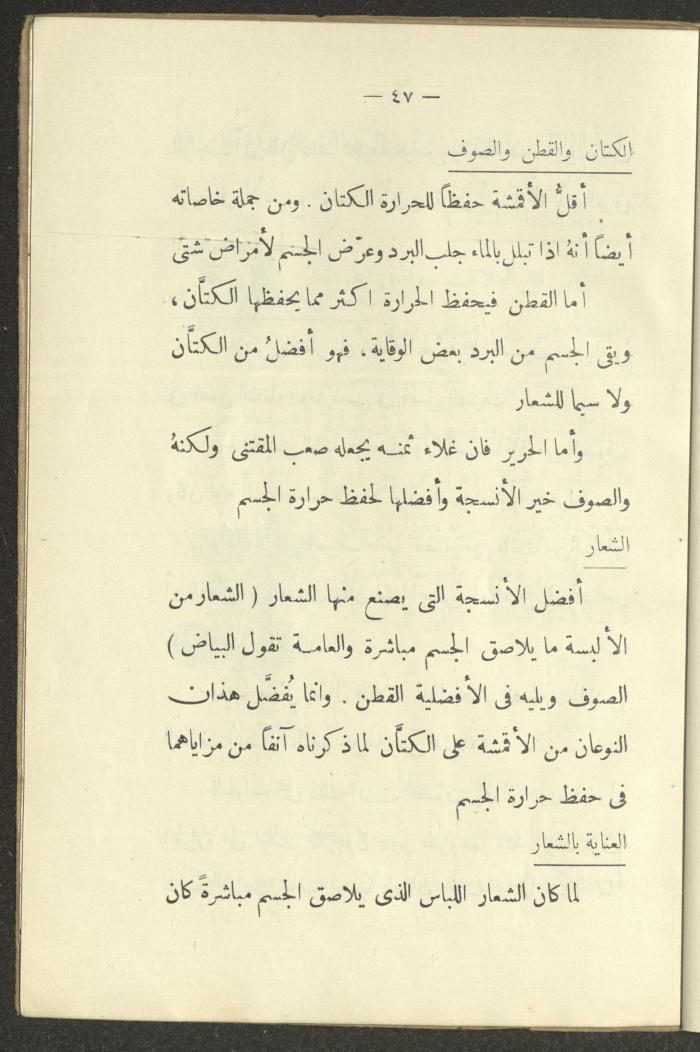 — ٤٧ —
الكتان والقطن والصوف
أقلُّ الأقمشة حفظاً للحرارة الكتان . ومن جملة خاصاته
أيضاً أنهُ اذا تبلل بالماء جلب البرد وعرّض الجسم لأمراض شتى
أما القطن فيحفظ الحرارة اكثر مما يحفظها الكتَّان ،
ويقى الجسم من البرد بعض الوقاية ، فهو أفضلُ من الكتَّان
ولا سيما للشعار
وأما الحرير فان غلاء ثمنه يجعله صعب المقتنى ولكنهُ
والصوف خير الأنسجة وأفضلها لحفظ حرارة الجسم
الشعار
أفضل الأنسجة التى يصنع منها الشعار ( الشعار من
الألبسة ما يلاصق الجسم مباشرة والعامة تقول البياض )
الصوف ويليه فى الأفضلية القطن . وانما يُفضَّل هذان
النوعان من الأقمشة على الكتَّان لما ذكرناه آنفاً من مزاياهما
فى حفظ حرارة الجسم
العناية بالشعار
لما كان الشعار اللباس الذى يلاصق الجسم مباشرةً كان